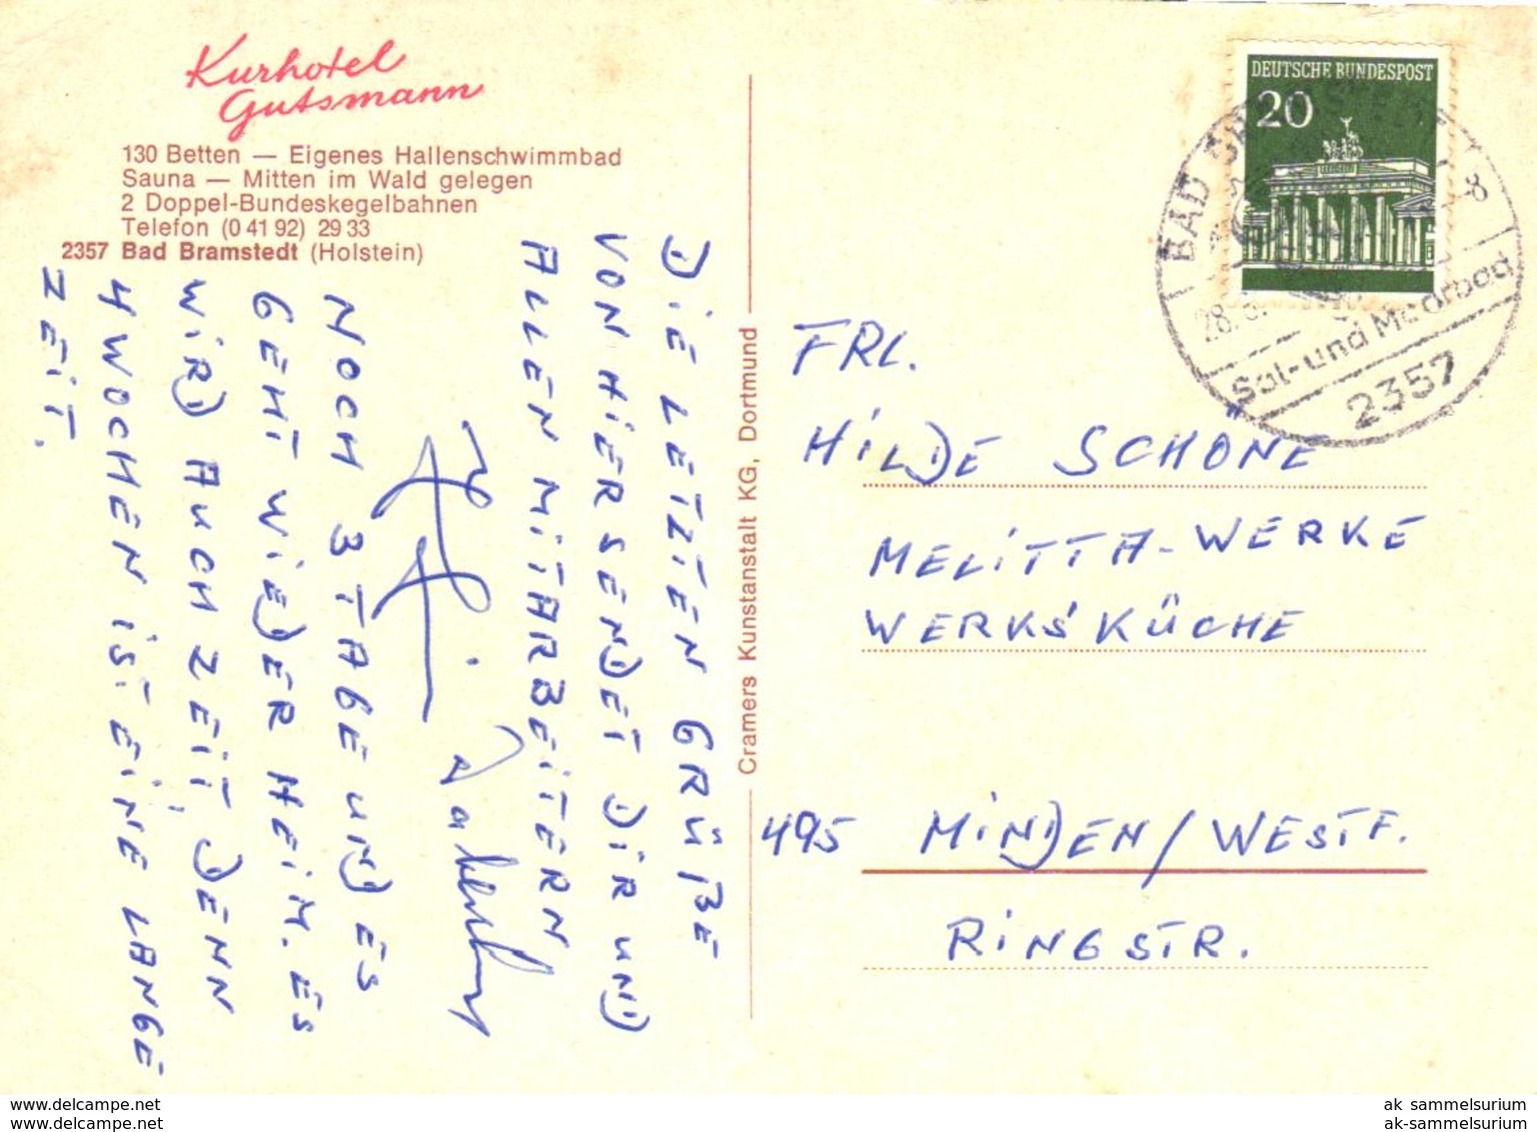 Kurhotel
Gutsmann
130 Betten — Eigenes Hallenschwimmbad
Sauna — Mitten im Wald gelegen
2 Doppel-Bundeskegelbahnen
Telefon (0 41 92) 29 33
2357 Bad Bramstedt (Holstein)
DIE LETZTEN GRÜßE
VON HIER SENDET DIR UND
ALLEN MITARBEITERN
NOCH 3 TAGE UND ES
GEHT WIEDER HEIM. ES
WIRD AUCH ZEIT, DENN
4 WOCHEN IST EINE LANGE
ZEIT.
Cramers Kunstanstalt KG, Dortmund
DEUTSCHE BUNDESPOST
20
BAD
28.
-8
Sol- und Moorbad
2357
FRL.
HILDE SCHONE
MELITTA-WERKE
WERKSKÜCHE
495 MINDEN/WESTF.
RINGSTR.
www.delcampe.net
www.delcampe.net
ak_sammelsurium
ak-sammelsurium